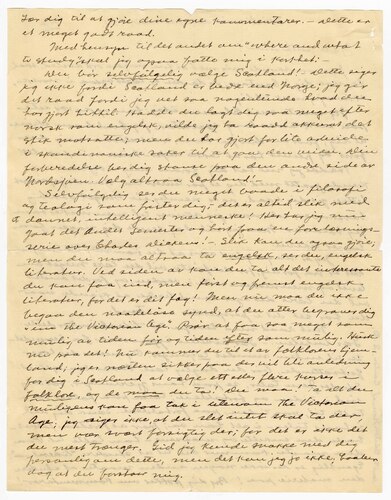 for dig til at gjøre dine egne kommentarer. – Dette er
et meget godt raad.
Med hensyn til det andet om "where and what
to study" skal jeg ogsaa fatte mig i korthet:-
Du bør selvfølgelig vælge Scotland! – Dette siger
jeg ikke fordi Scotland er bedre end Norge; jeg gir
dit raad fordi jeg vet saa nogenlunde hvad du
har gjort hittil. Hadde du lagt dig saa meget efter
norsk som engelsk, vilde jeg ha raadd akkurat det
stik motsatte; men du har gjort for lite arbeide
i skandinaviske saker til at gaa den veien. Din
forberedelse berdig staaende paa den anden side av
Nordsjøen. Velg altsaa Scotland!
Selvfølgelig ser du meget baade i filosofi
og teologi som frister dig; det er altid slik med
et dannet, intelligent menneske! Her har jeg nu
gaat det Andet Semester og hørt paa en forelesnings-
serie over Charles Dickens! Slik kan du ogsaa gjøre,
men du maa altsaa ta engelsk, ser du, engelsk
literatur. Ved siden av kan du ta alt det interessante
du kan faa ind, men først og fremst engelsk
literatur, for det er dit fag! Men nu maa du ikke
begaa den naadeløse synd, at du atter begraver dig
i "The Victorian Age". Prøv at faa saa meget som
mulig av tiden før og tiden efter som mulig. Husk
nu paa det! Nu kommer du til et av folklorens hjem-
land; jeg er næsten sikker paa der vil bli anledning
for dig i Scotland at vælge et eller flere kurser i
folklore, og de maa du ta! Du maa! Ta alt du
muligens kan faa tak i utenom The Victorian
Age; jeg siger ikke, at du slet intet skal ta der,
men vær svært forsigtig der; for det er ikke det
du mest trænger. Gid jeg kunde snakke med dig
personlig om dette, men det kan jeg jo ikke,
dog at du forstaar mig.